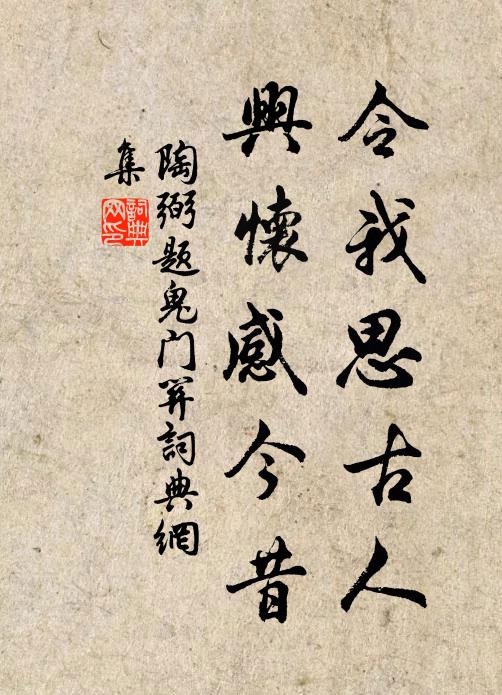 令我思古人
興懷感今昔
陶弼題鬼门関詞典網
集
詞典网印